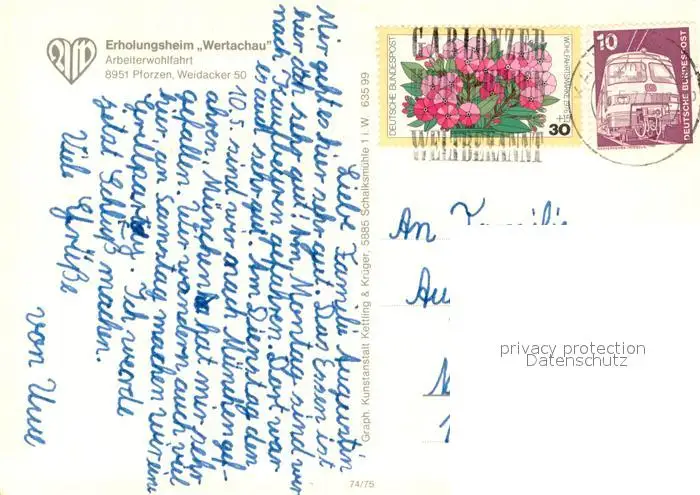 Erholungsheim „Wertachau"
Arbeiterwohlfahrt
8951 Pforzen, Weidacker 50
Liebe Familie Augustin
Mir geht es hier sehr gut. Das Essen ist
hier auch sehr gut! Am Montag sind wir
nach Kaufbeuren gefahren. Dort war
es auch sehr gut. Am Dienstag den
10. sind wir nach München gef-
ahren, München hat mir sehr
gefallen. Wir wandern auch viel
hier, am Samstag machen wir eine
Grillparty. Ich werde
jetzt Schluß machen.
Viele Grüße
von Uwe
Graph. Kunstanstalt Kettling & Krüger, 5885 Schalksmühle 1 i. W. 635 99
74/75
DEUTSCHE BUNDESPOST
WOHLFAHRTSMARKE 1976
+15
30
10
DEUTSCHE BUNDESPOST
GABLONZER
WELTBEKANNT
An Familie
Au
privacy protection
Datenschutz